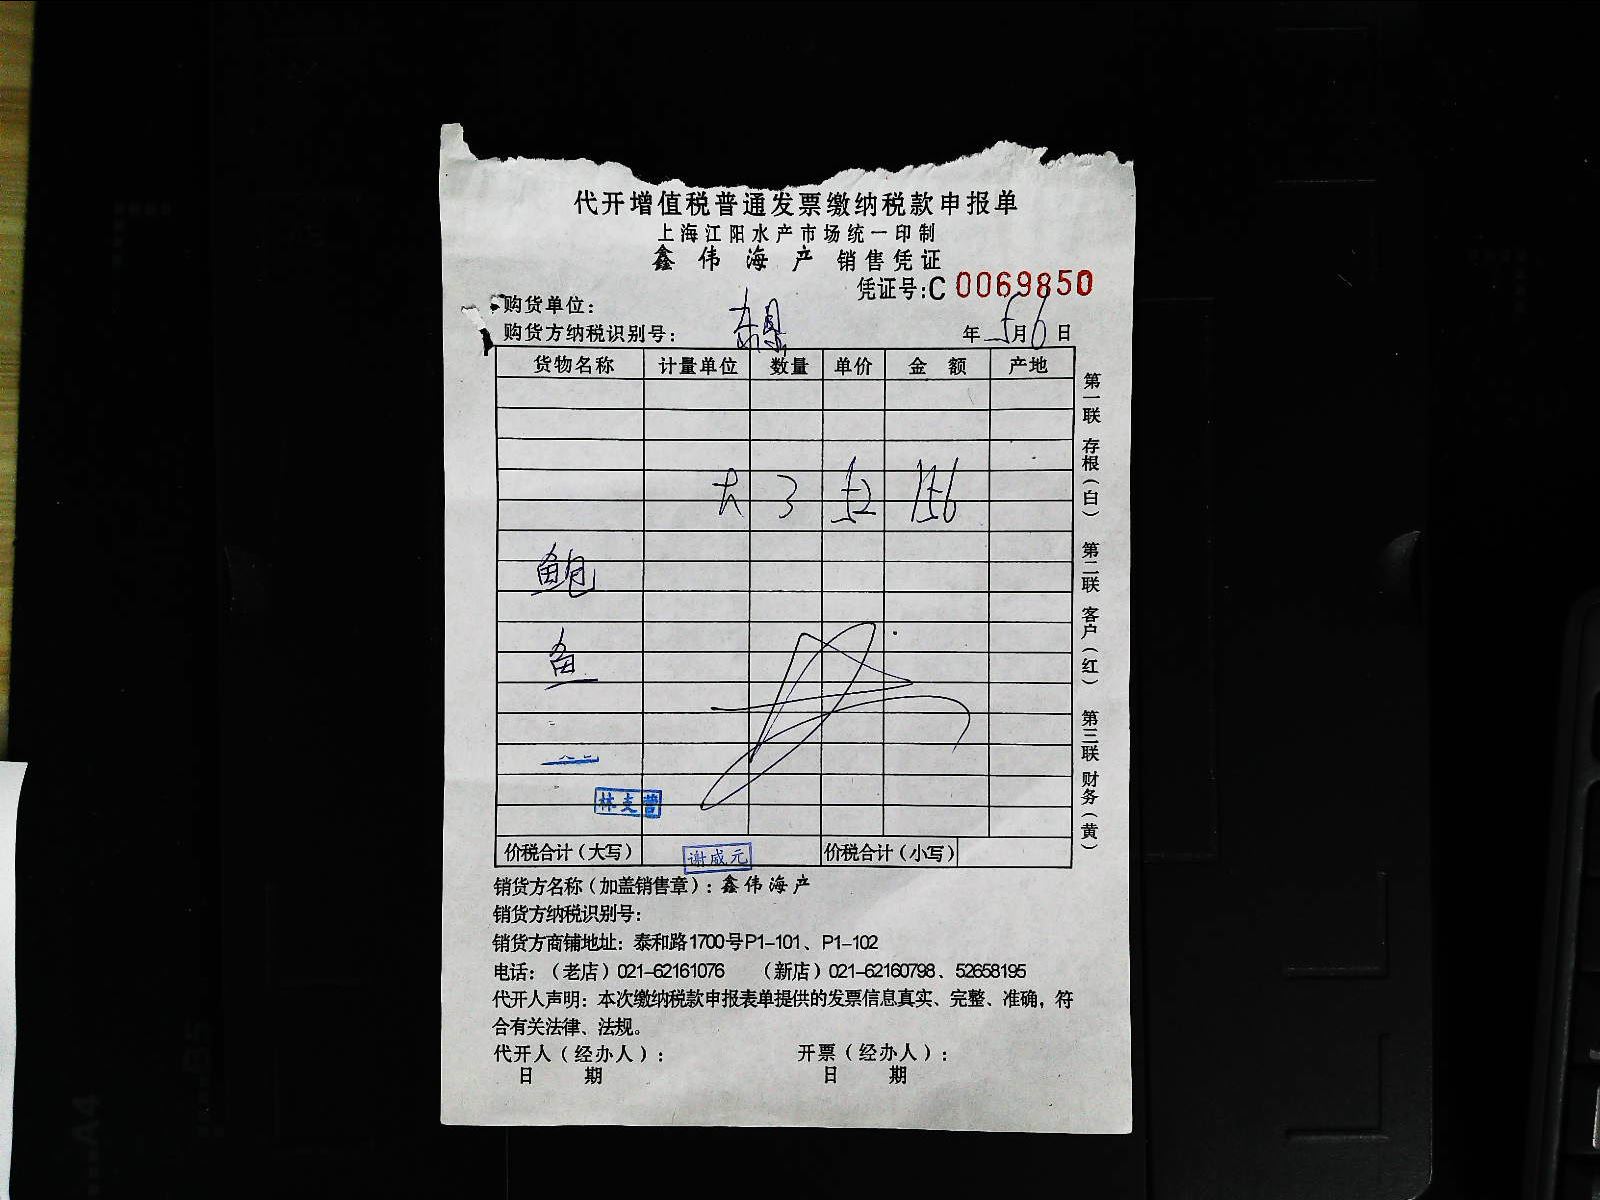 代开增值税普通发票缴纳税款申报单
上海江阳水产市场统一印制
鑫伟海产 销售凭证
凭证号:C 0069850
购货单位:
购货方纳税识别号:
年 5月6日
货物名称 计量单位 数量 单价 金额 产地
大 3 52 156
鲍
鱼
林支营
价税合计(大写) 谢威元 价税合计(小写)
第一联 存根(白) 第二联 客户(红) 第三联 财务(黄)
销货方名称(加盖销售章):鑫伟海产
销货方纳税识别号:
销货方商铺地址:泰和路1700号P1-101、P1-102
电话:(老店)021-62161076 (新店)021-62160798、52658195
代开人声明:本次缴纳税款申报表单提供的发票信息真实、完整、准确,符
合有关法律、法规。
代开人(经办人): 开票(经办人):
日 期 日 期
A4
B5